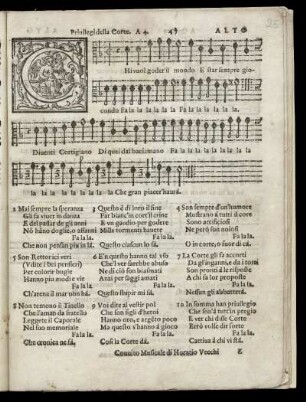 Priuilegi della Corte. A 4. 47 ALTO
CHi vuol goder il mondo E star sempre gio-
condo Fa la la la la la la Fa la la la la la la.
Diuenti Cortigiano Fa la la la
la la la la la la la la la Che gran piacer haurà.
2 Mai sempre la speranza
Gli fa viuer in danza
Fa la la.
Che non pensan più in là.
3 Questo è di loro il fine
Far bianchi i crin
E vn giudizio per godere
Mille tormenti hauere
Fa la la.
Questo ciascun lo sà.
4 Son sempre d'un' humore
Mostrano à tutti il core
Sono artificiosi
Ne però son noiosi
Fa la la.
O in corte, o fuor di cà.
5 Son Rettorici veri
Per colorir bugie
Hanno più modi e vie
Fa la la.
Ch'arena il mar non hà
6 En questo hanno tal vso
Che'l ver sarebbe abuso
Ne di ciò son biasmati
Anzi per saggi amati
Fa la la.
Questo stupir mi fà.
7 La Corte gli fa accorti
Son pronti à le risposte
A chi fa lor proposte
Fa la la.
Nessun gli abbatterà.
8 Non temono il Tinello
Che l'aman da fratello
Leggete il Caporale
Nel suo memoriale
Fa la la.
Che cronica ne fà.
9 Voi dite al vestir poi
Che son figli d'heroi
Hanno oro, e argento poco
Ma questo s'hanno à gioco
Fa la la.
Così la Corte dà.
10 In somma han priuilegio
E ver chi disse Corte
Fa la la.
Cattiua à chi vi stà.
Conuito Musicale di Horatio Vecchi E